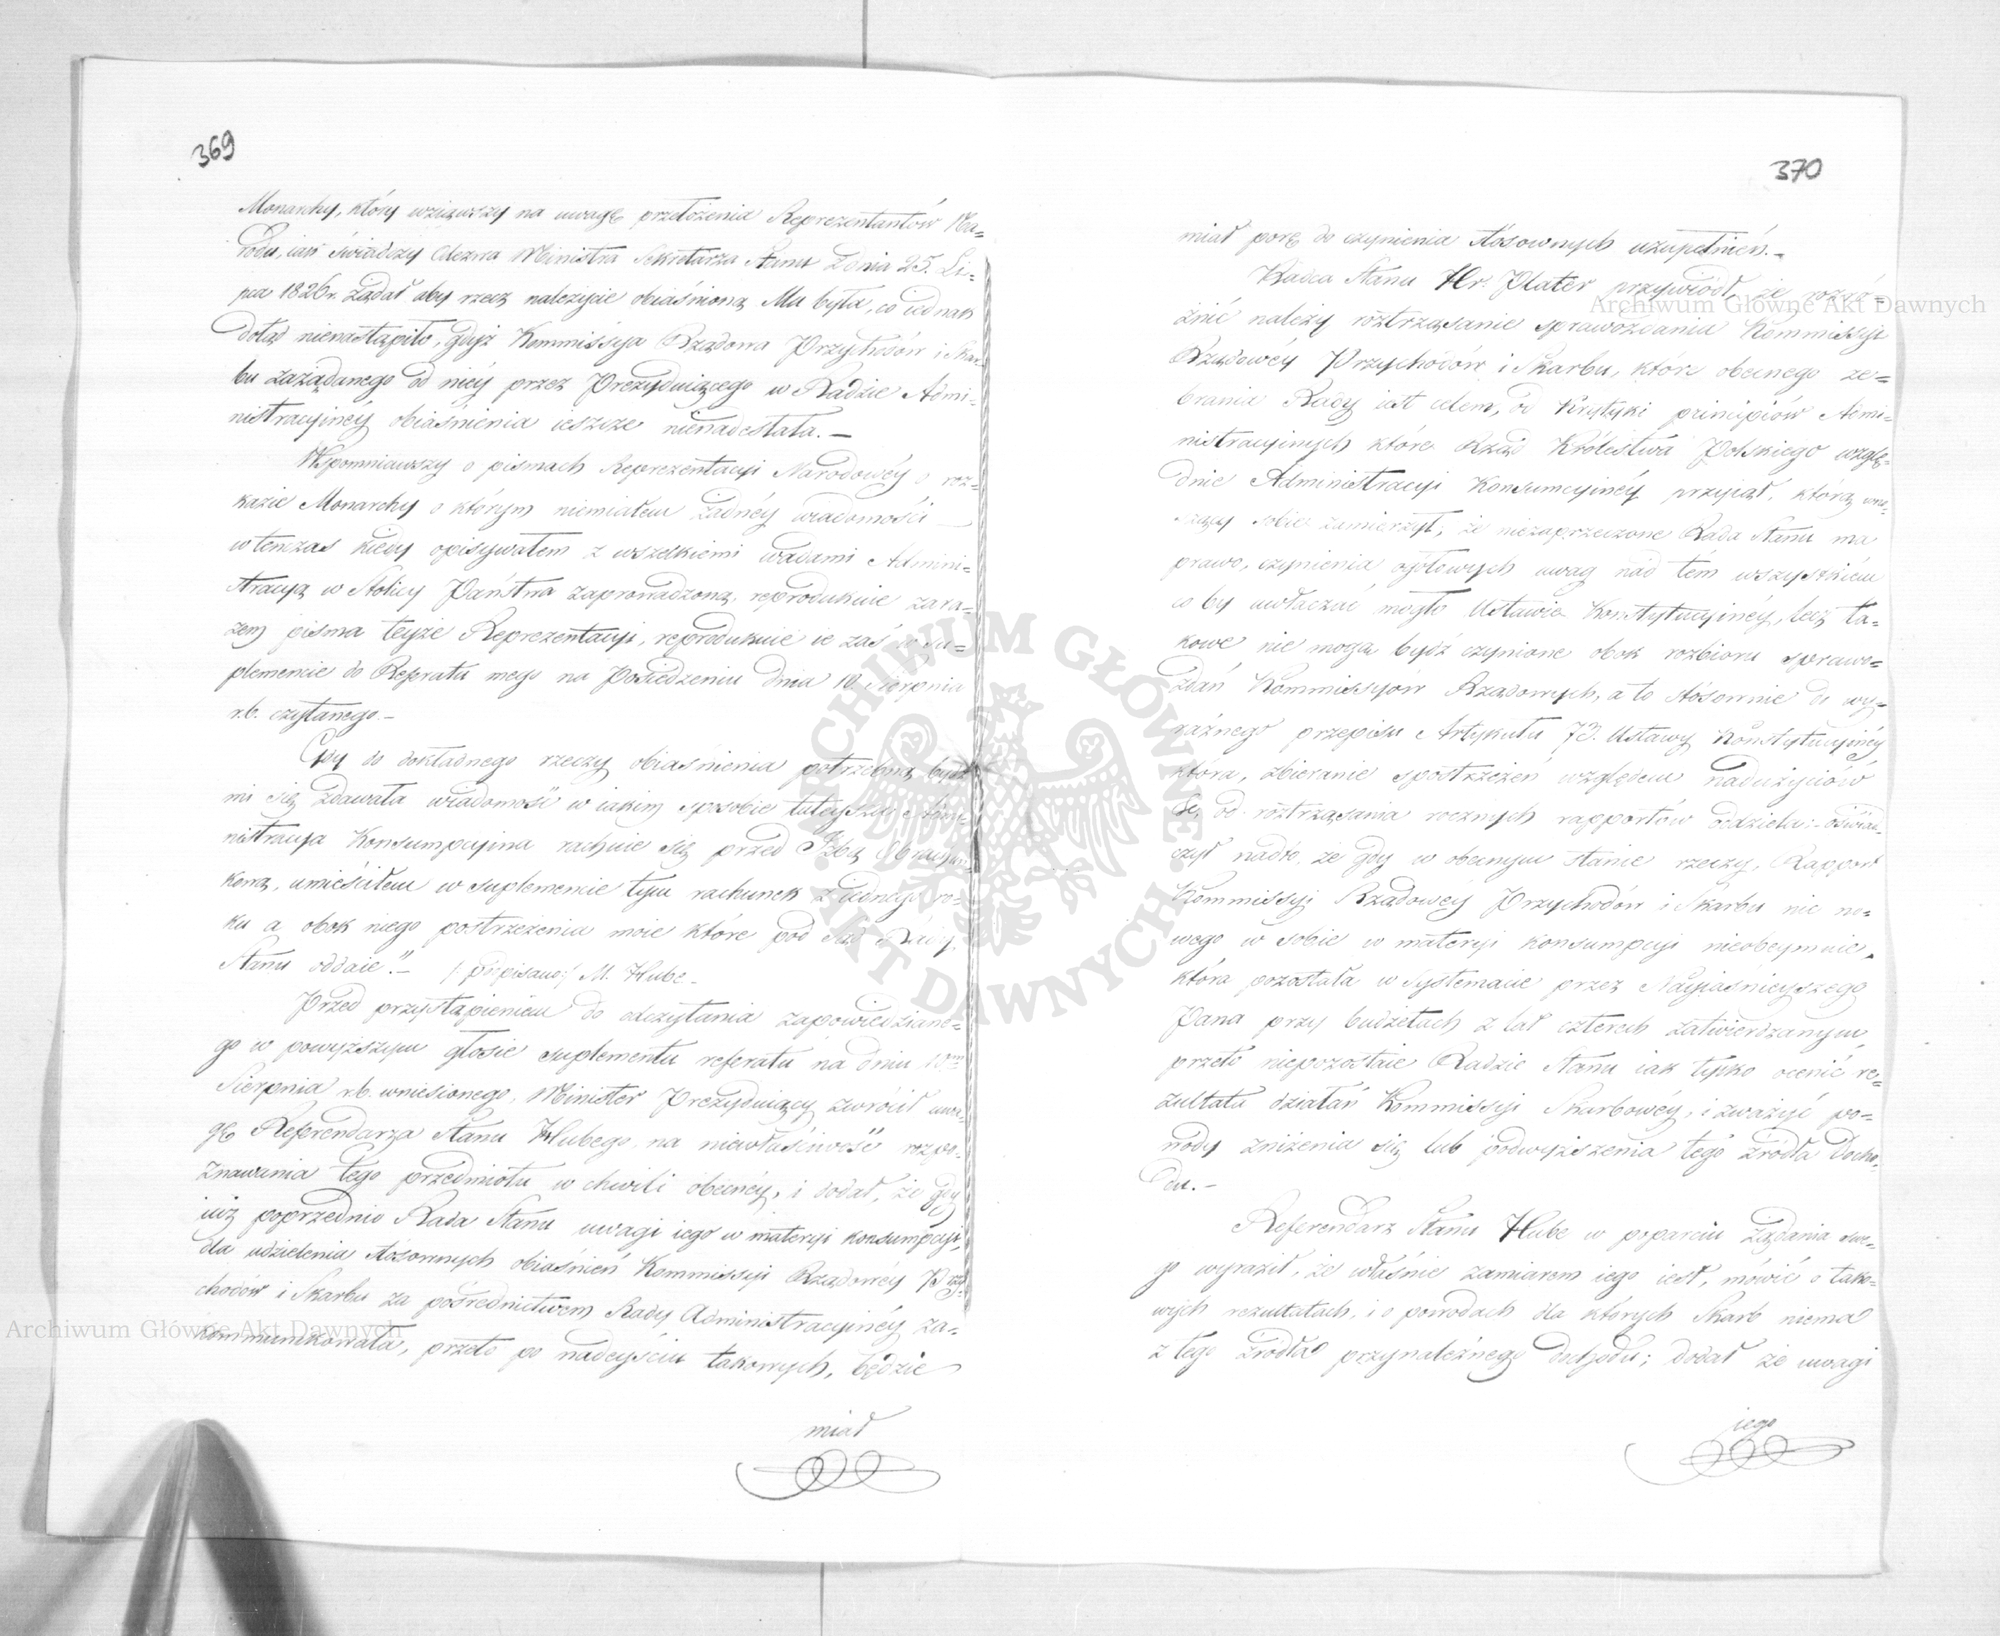 369
Monarchy, który wziąwszy na uwagę przełożenia Reprezentantów Na=
rodu, iak świadczy Odezwa Ministra Sekretarza Stanu z dnia 25. Li=
pca 1826 r. żądał aby rzecz należycie obiaśnioną Mu była, co iednak
dotąd nienastąpiło, gdyż Kommissya Rządowa Przychodów i Skar=
bu zażądanego od niéy przez Prezyduiącego w Radzie Admi=
nistracyinéy obiaśnienia ieszcze nienadesłała. —
Wspomniawszy o pismach Reprezentacyi Narodowéy o roz=
kazie Monarchy o którym niemiałem żadnéy wiadomości
wtenczas kiedy opisywałem z wszelkiemi wadami Admini=
stracyą w Stolicy Państwa zaprowadzoną, reprodukuie zara=
zem pisma teyże Reprezentacyi, reprodukuie ie zaś w su=
plemencie do Referatu mego na Posiedzeniu dnia 10 Sierpnia
r.b. czytanego. —
Gdy do dokładnego rzeczy obiaśnienia potrzebną bydź
mi się zdawała wiadomość w iakim sposobie tuteysza Admi=
nistracya Konsumpcyina rachuie się przed Izbą Obrachun=
kową, umieściłem w suplemencie tym rachunek z iednego ro=
ku a obok niego postrzeżenia moie które pod Sąd Rady
Stanu oddaie." — /: podpisano :/ M. Hube. —
Przed przystąpieniem do odczytania zapowiedziane=
go w powyższym głosie suplementu referatu na dniu 10m
Sierpnia r.b. wniesionego, Minister Prezyduiący zwrócił uwa=
gę Referendarza Stanu Hubego na niewłaściwość rozpo=
znawania tego przedmiotu w chwili obecnéy, i dodał, że gdy
iuż poprzednio Rada Stanu uwagi iego w materyi konsumpcyi,
dla udzielenia stósownych obiaśnień Kommissyi Rządowéy Przy=
chodów i Skarbu za pośrednictwem Rady Administracyinéy za=
kommunikowała, przeto po nadeyściu takowych, będzie
miał
370
miał porę do czynienia stósownych uzupełnień. —
Radca Stanu Hr. Plater przywiódł, że rozró=
żnić należy roztrząsanie sprawozdania Kommissyi
Rządowéy Przychodów i Skarbu, które obecnego ze=
brania Rady iest celem, od krytyki principiów Admi=
nistracyinych które Rząd Królestwa Polskiego wzglę=
dnie Administracyi Konsumcyinéy przyiął, którą wno=
szący sobie zamierzył; że niezaprzeczone Rada Stanu ma
prawo, czynienia ogólowych uwag nad tém wszystkiém
co by uwłaczać mogło Ustawie Konstytucyinéy, lecz ta=
kowe nie mogą bydź czynione obok rozbioru sprawo=
zdań Kommissyów Rządowych, a to stósownie do wy=
raźnego przepisu Artykułu 73. Ustawy Konstytucyinéy
która, zbieranie spostrzeżeń względem nadużyciów
&c. od roztrząsania rocznych rapportów oddziela: — oświad=
czył nadto, że gdy w obecnym stanie rzeczy, Rapport
Kommissyi Rządowéy Przychodów i Skarbu nic no=
wego w sobie w materyi konsumpcyi nieobeymuie,
która pozostała w Systemacie przez Nayiaśnieyszego
Pana przy budżetach z lat czterech zatwierdzanym,
przeto niepozostaie Radzie Stanu iak tylko ocenić re=
zultata działań Kommissyi Skarbowéy, i zważyć po=
wody zniżenia się lub podwyższenia tego źródła docho=
du. —
Referendarz Stanu Hube w poparciu żądania swe=
go wyraził, że właśnie zamiarem iego iest, mówić o tako=
wych rezultatach, i o powodach dla których Skarb niema
z tego źródła przynależnego dochodu; dodał że uwagi
iego
Archiwum Główne Akt Dawnych
Archiwum Główne Akt Dawnych
ARCHIWUM GŁÓWNE AKT DAWNYCH